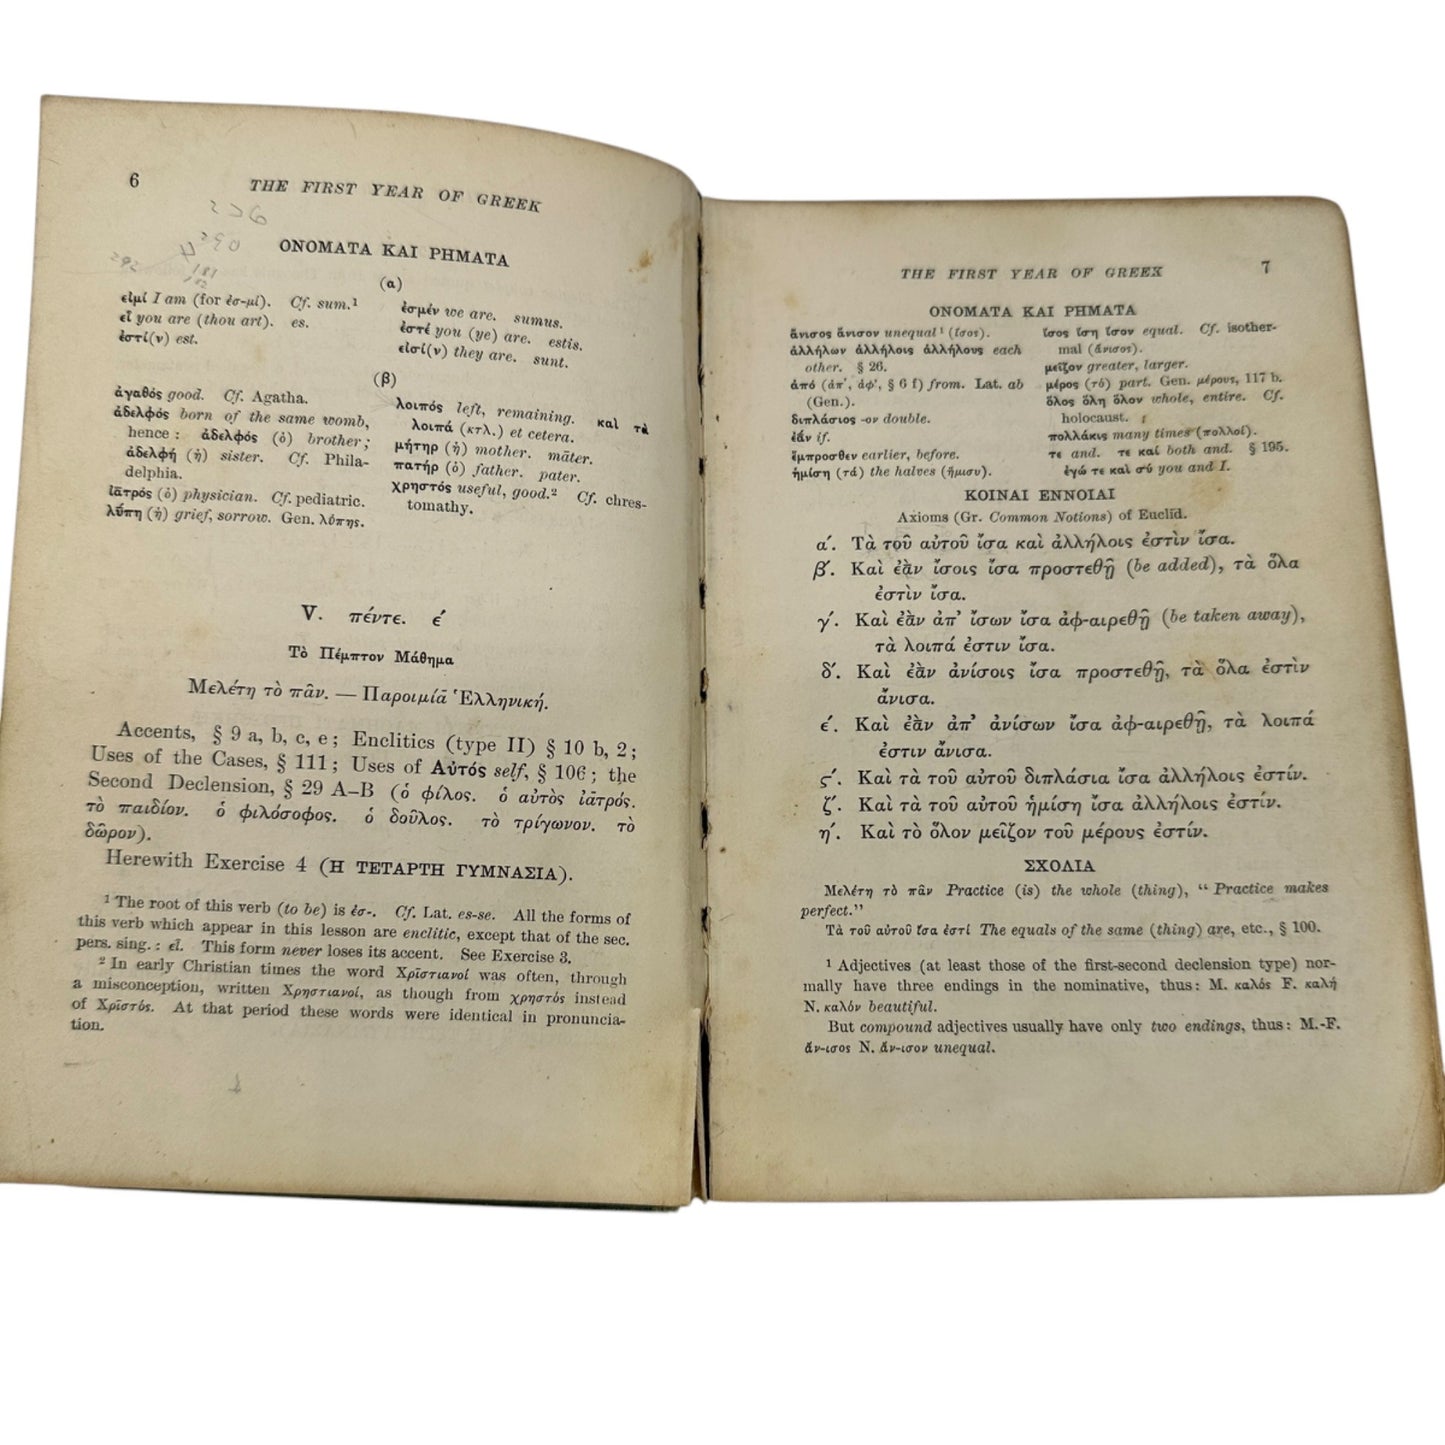 6
THE FIRST YEAR OF GREEK
ΟΝΟΜΑΤΑ ΚΑΙ ΡΗΜΑΤΑ
(α)
εἰμί I am (for ἐσ-μί). Cf. sum.¹
εἶ you are (thou art). es.
ἐστί(ν) est.
ἐσμέν we are. sumus.
ἐστέ you (ye) are. estis.
εἰσί(ν) they are. sunt.
(β)
ἀγαθός good. Cf. Agatha.
ἀδελφός born of the same womb,
hence: ἀδελφός (ὁ) brother;
ἀδελφή (ἡ) sister. Cf. Phila-
delphia.
ἰᾱτρός (ὁ) physician. Cf. pediatric.
λῡ́πη (ἡ) grief, sorrow. Gen. λύπης.
λοιπός left, remaining. καὶ τὰ
λοιπά (κτλ.) et cetera.
μήτηρ (ἡ) mother. māter.
πατήρ (ὁ) father. pater.
χρηστός useful, good.² Cf. chres-
tomathy.
V. πέντε. ε´
Τὸ Πέμπτον Μάθημα
Μελέτη τὸ πᾶν. — Παροιμίᾱ Ἑλληνική.
Accents, § 9 a, b, c, e; Enclitics (type II) § 10 b, 2;
Uses of the Cases, § 111; Uses of Αὐτός self, § 106; the
Second Declension, § 29 A–B (ὁ φίλος. ὁ αὐτὸς ἰᾱτρός.
τὸ παιδίον. ὁ φιλόσοφος. ὁ δοῦλος. τὸ τρίγωνον. τὸ
δῶρον).
Herewith Exercise 4 (Η ΤΕΤΑΡΤΗ ΓΥΜΝΑΣΙΑ).
¹ The root of this verb (to be) is ἐσ-. Cf. Lat. es-se. All the forms of
this verb which appear in this lesson are enclitic, except that of the sec.
pers. sing.: εἶ. This form never loses its accent. See Exercise 3.
² In early Christian times the word Χρῑστιανοί was often, through
a misconception, written Χρηστιανοί, as though from χρηστός instead
of Χρῑστός. At that period these words were identical in pronuncia-
tion.
THE FIRST YEAR OF GREEK
7
ΟΝΟΜΑΤΑ ΚΑΙ ΡΗΜΑΤΑ
ἄνισος ἄνισον unequal¹ (ἴσος).
ἀλλήλων ἀλλήλοις ἀλλήλους each
other. § 26.
ἀπό (ἀπ', ἀφ', § 6 f) from. Lat. ab
(Gen.).
διπλάσιος -ον double.
ἐᾱ́ν if.
ἔμπροσθεν earlier, before.
ἡμίση (τὰ) the halves (ἥμισυ).
ἴσος ἴση ἴσον equal. Cf. isother-
mal (ἄνισος).
μεῖζον greater, larger.
μέρος (τὸ) part. Gen. μέρους, 117 b.
ὅλος ὅλη ὅλον whole, entire. Cf.
holocaust.
πολλάκις many times (πολλοί).
τε and. τε καί both and. § 195.
ἐγώ τε καὶ σύ you and I.
ΚΟΙΝΑΙ ΕΝΝΟΙΑΙ
Axioms (Gr. Common Notions) of Euclid.
α´. Τὰ τοῦ αὐτοῦ ἴσα καὶ ἀλλήλοις ἐστὶν ἴσα.
β´. Καὶ ἐὰν ἴσοις ἴσα προστεθῇ (be added), τὰ ὅλα
ἐστὶν ἴσα.
γ´. Καὶ ἐὰν ἀπ' ἴσων ἴσα ἀφ-αιρεθῇ (be taken away),
τὰ λοιπά ἐστιν ἴσα.
δ´. Καὶ ἐὰν ἀνίσοις ἴσα προστεθῇ, τὰ ὅλα ἐστὶν
ἄνισα.
ε´. Καὶ ἐὰν ἀπ' ἀνίσων ἴσα ἀφ-αιρεθῇ, τὰ λοιπά
ἐστιν ἄνισα.
ς´. Καὶ τὰ τοῦ αὐτοῦ διπλάσια ἴσα ἀλλήλοις ἐστίν.
ζ´. Καὶ τὰ τοῦ αὐτοῦ ἡμίση ἴσα ἀλλήλοις ἐστίν.
η´. Καὶ τὸ ὅλον μεῖζον τοῦ μέρους ἐστίν.
ΣΧΟΛΙΑ
Μελέτη τὸ πᾶν Practice (is) the whole (thing), "Practice makes
perfect."
Τὰ τοῦ αὐτοῦ ἴσα ἐστί The equals of the same (thing) are, etc., § 100.
¹ Adjectives (at least those of the first-second declension type) nor-
mally have three endings in the nominative, thus: M. καλός F. καλή
N. καλόν beautiful.
But compound adjectives usually have only two endings, thus: M.-F.
ἄν-ισος N. ἄν-ισον unequal.